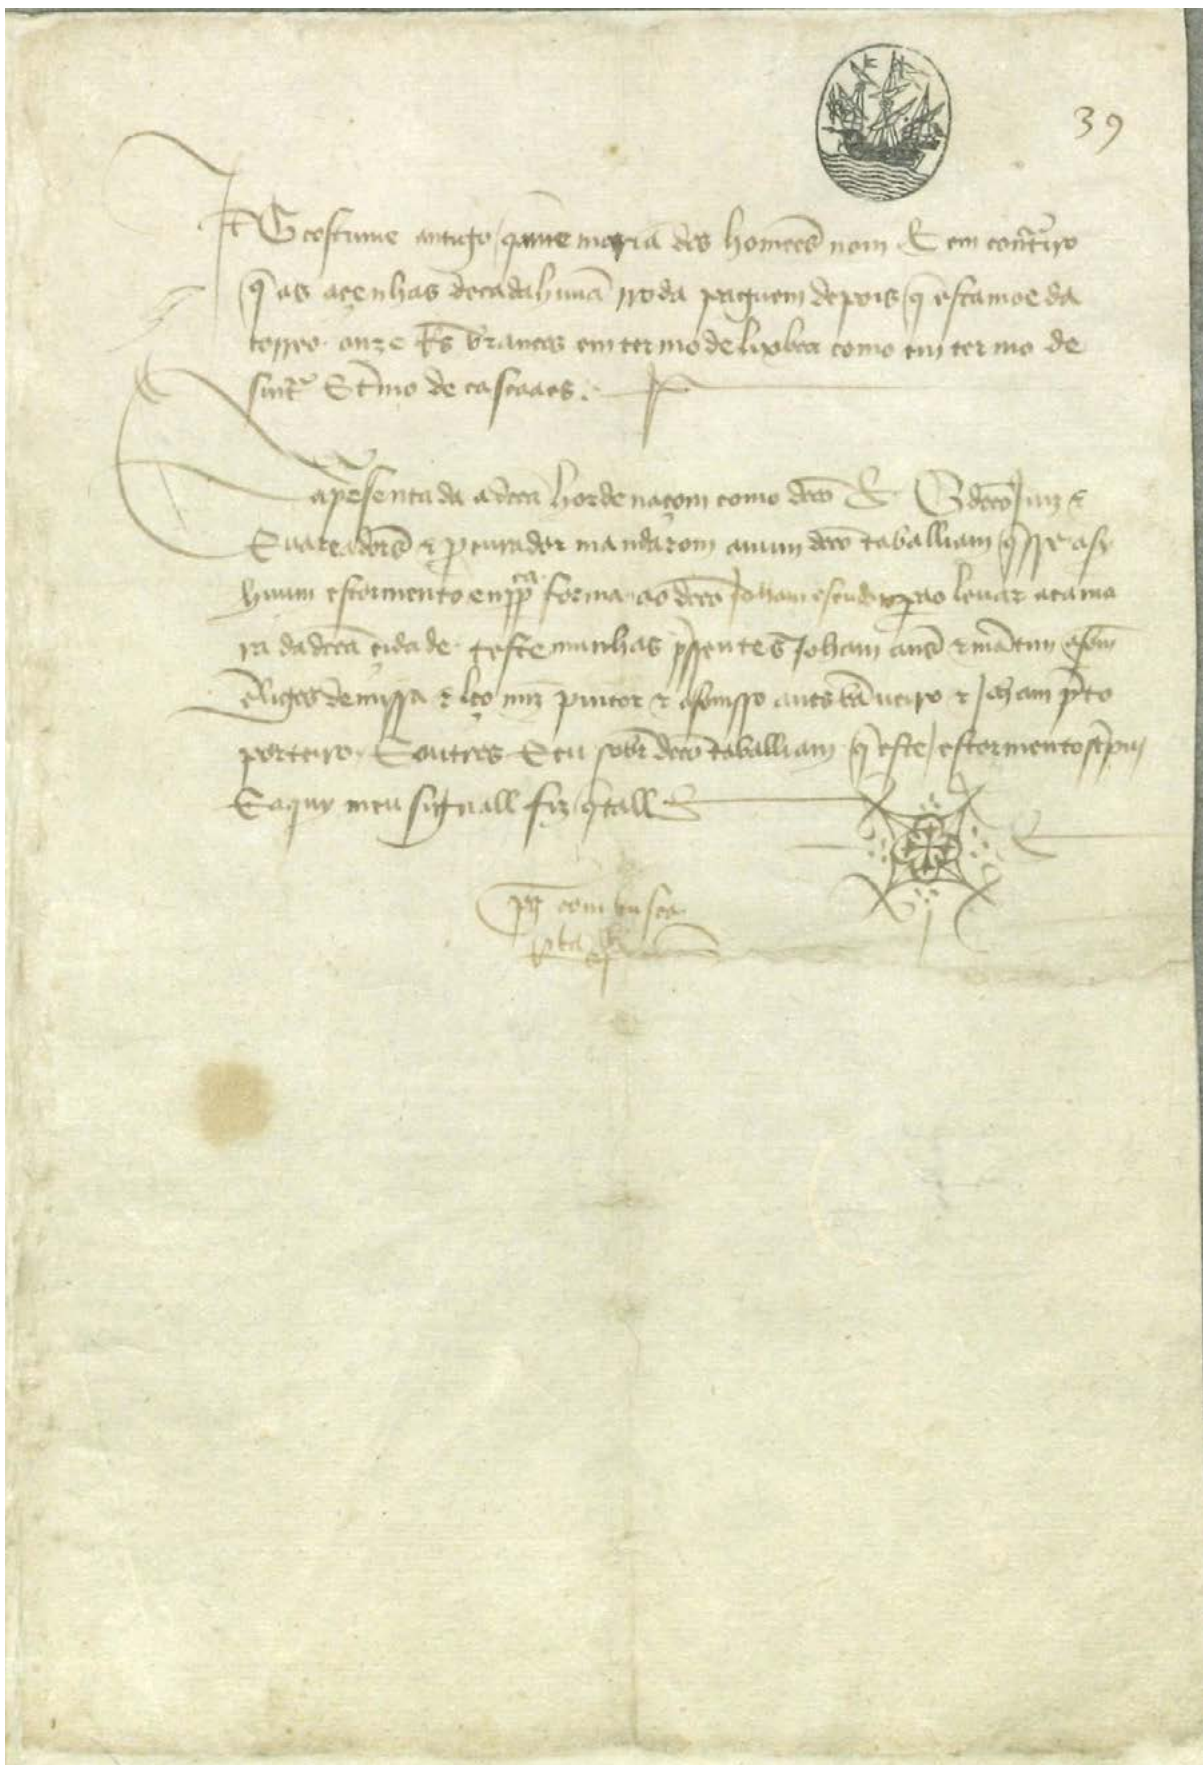 39
It costume antigo, que memoria dos homees nom he em contrairo
que as açenhas de cada huũa rroda paguem depois que esta moeda
correo onze Rs brancos em termo de lixboa como em termo de
sintra E tmo de cascaaes.
apresentada a dcta hordenaçom como dcto he Os dctos Juiz e
Evareadores e procurador mandarom a mim dcto taballiam
huum estormento em ppca forma ao dcto Joham escudeiro pa o levar a cama
ra da dcta çidade testemunhas pssentes Joham anes e martim afom
clerigos de missa e lço miz pintor e afomsso anes e Joham preto
porteiro E outros E eu sobre dcto taballiam que este estormento screpvi
E aquy meu signall fiz que tall he
pg com busca